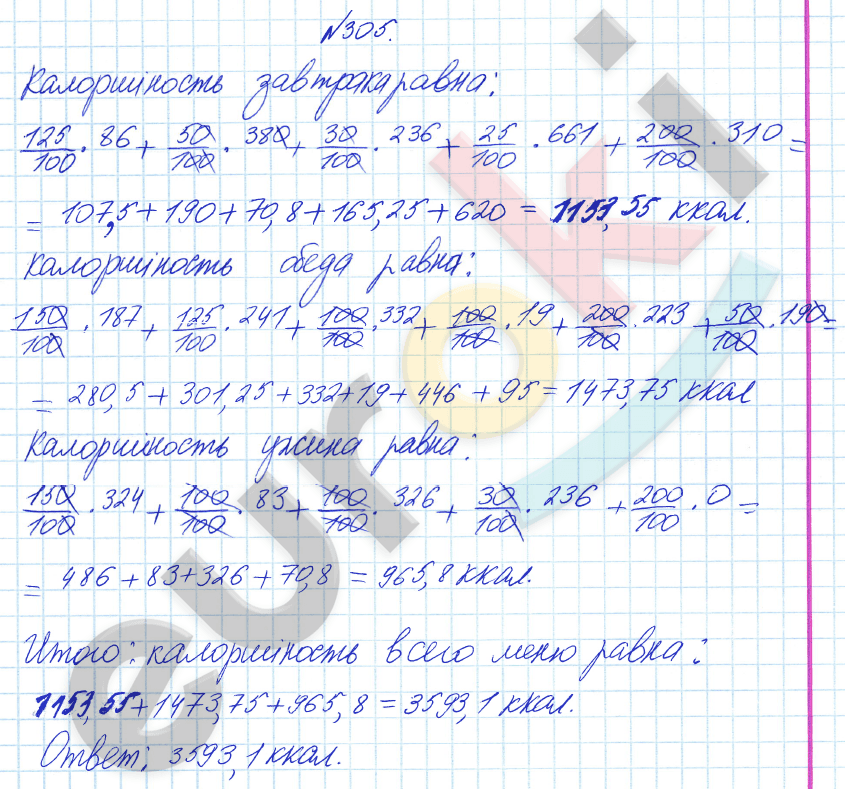 №305.
Калорийность завтрака равна:
125/100 · 86 + 50/100 · 380 + 30/100 · 236 + 25/100 · 661 + 200/100 · 310 =
= 107,5 + 190 + 70,8 + 165,25 + 620 = 1153,55 ккал.
Калорийность обеда равна:
150/100 · 187 + 125/100 · 241 + 100/100 · 332 + 100/100 · 19 + 200/100 · 223 + 50/100 · 190 =
= 280,5 + 301,25 + 332 + 19 + 446 + 95 = 1473,75 ккал
Калорийность ужина равна:
150/100 · 324 + 100/100 · 83 + 100/100 · 326 + 30/100 · 236 + 200/100 · 0 =
= 486 + 83 + 326 + 70,8 = 965,8 ккал.
Итого: калорийность всего меню равна:
1153,55 + 1473,75 + 965,8 = 3593,1 ккал.
Ответ: 3593,1 ккал.
euroki